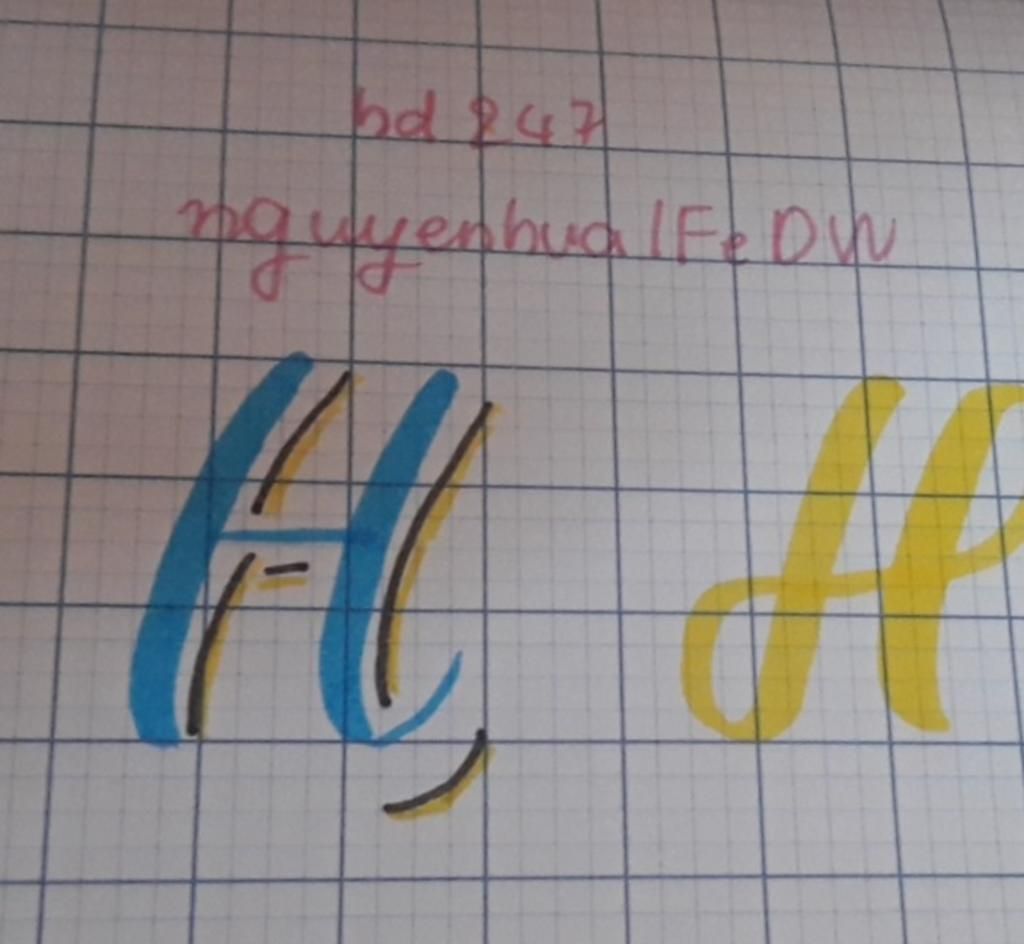 hd 247
nguyenhualFeDW
H H